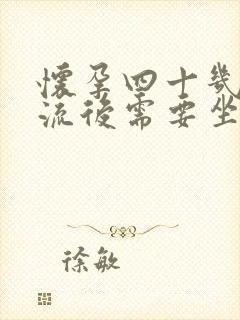 懷孕四十幾
流後需要坐
徐敏